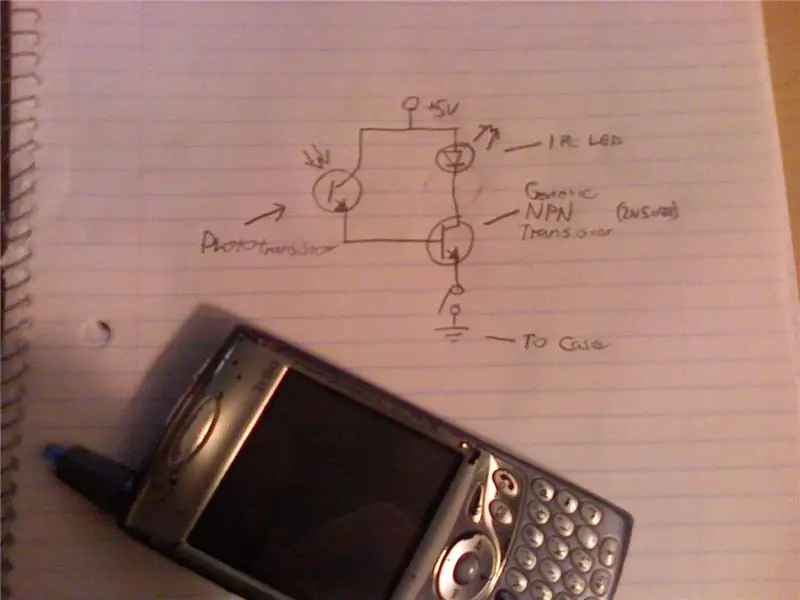 +5V
IR LED
Generic
NPN
Transistor
Phototransistor
To Case